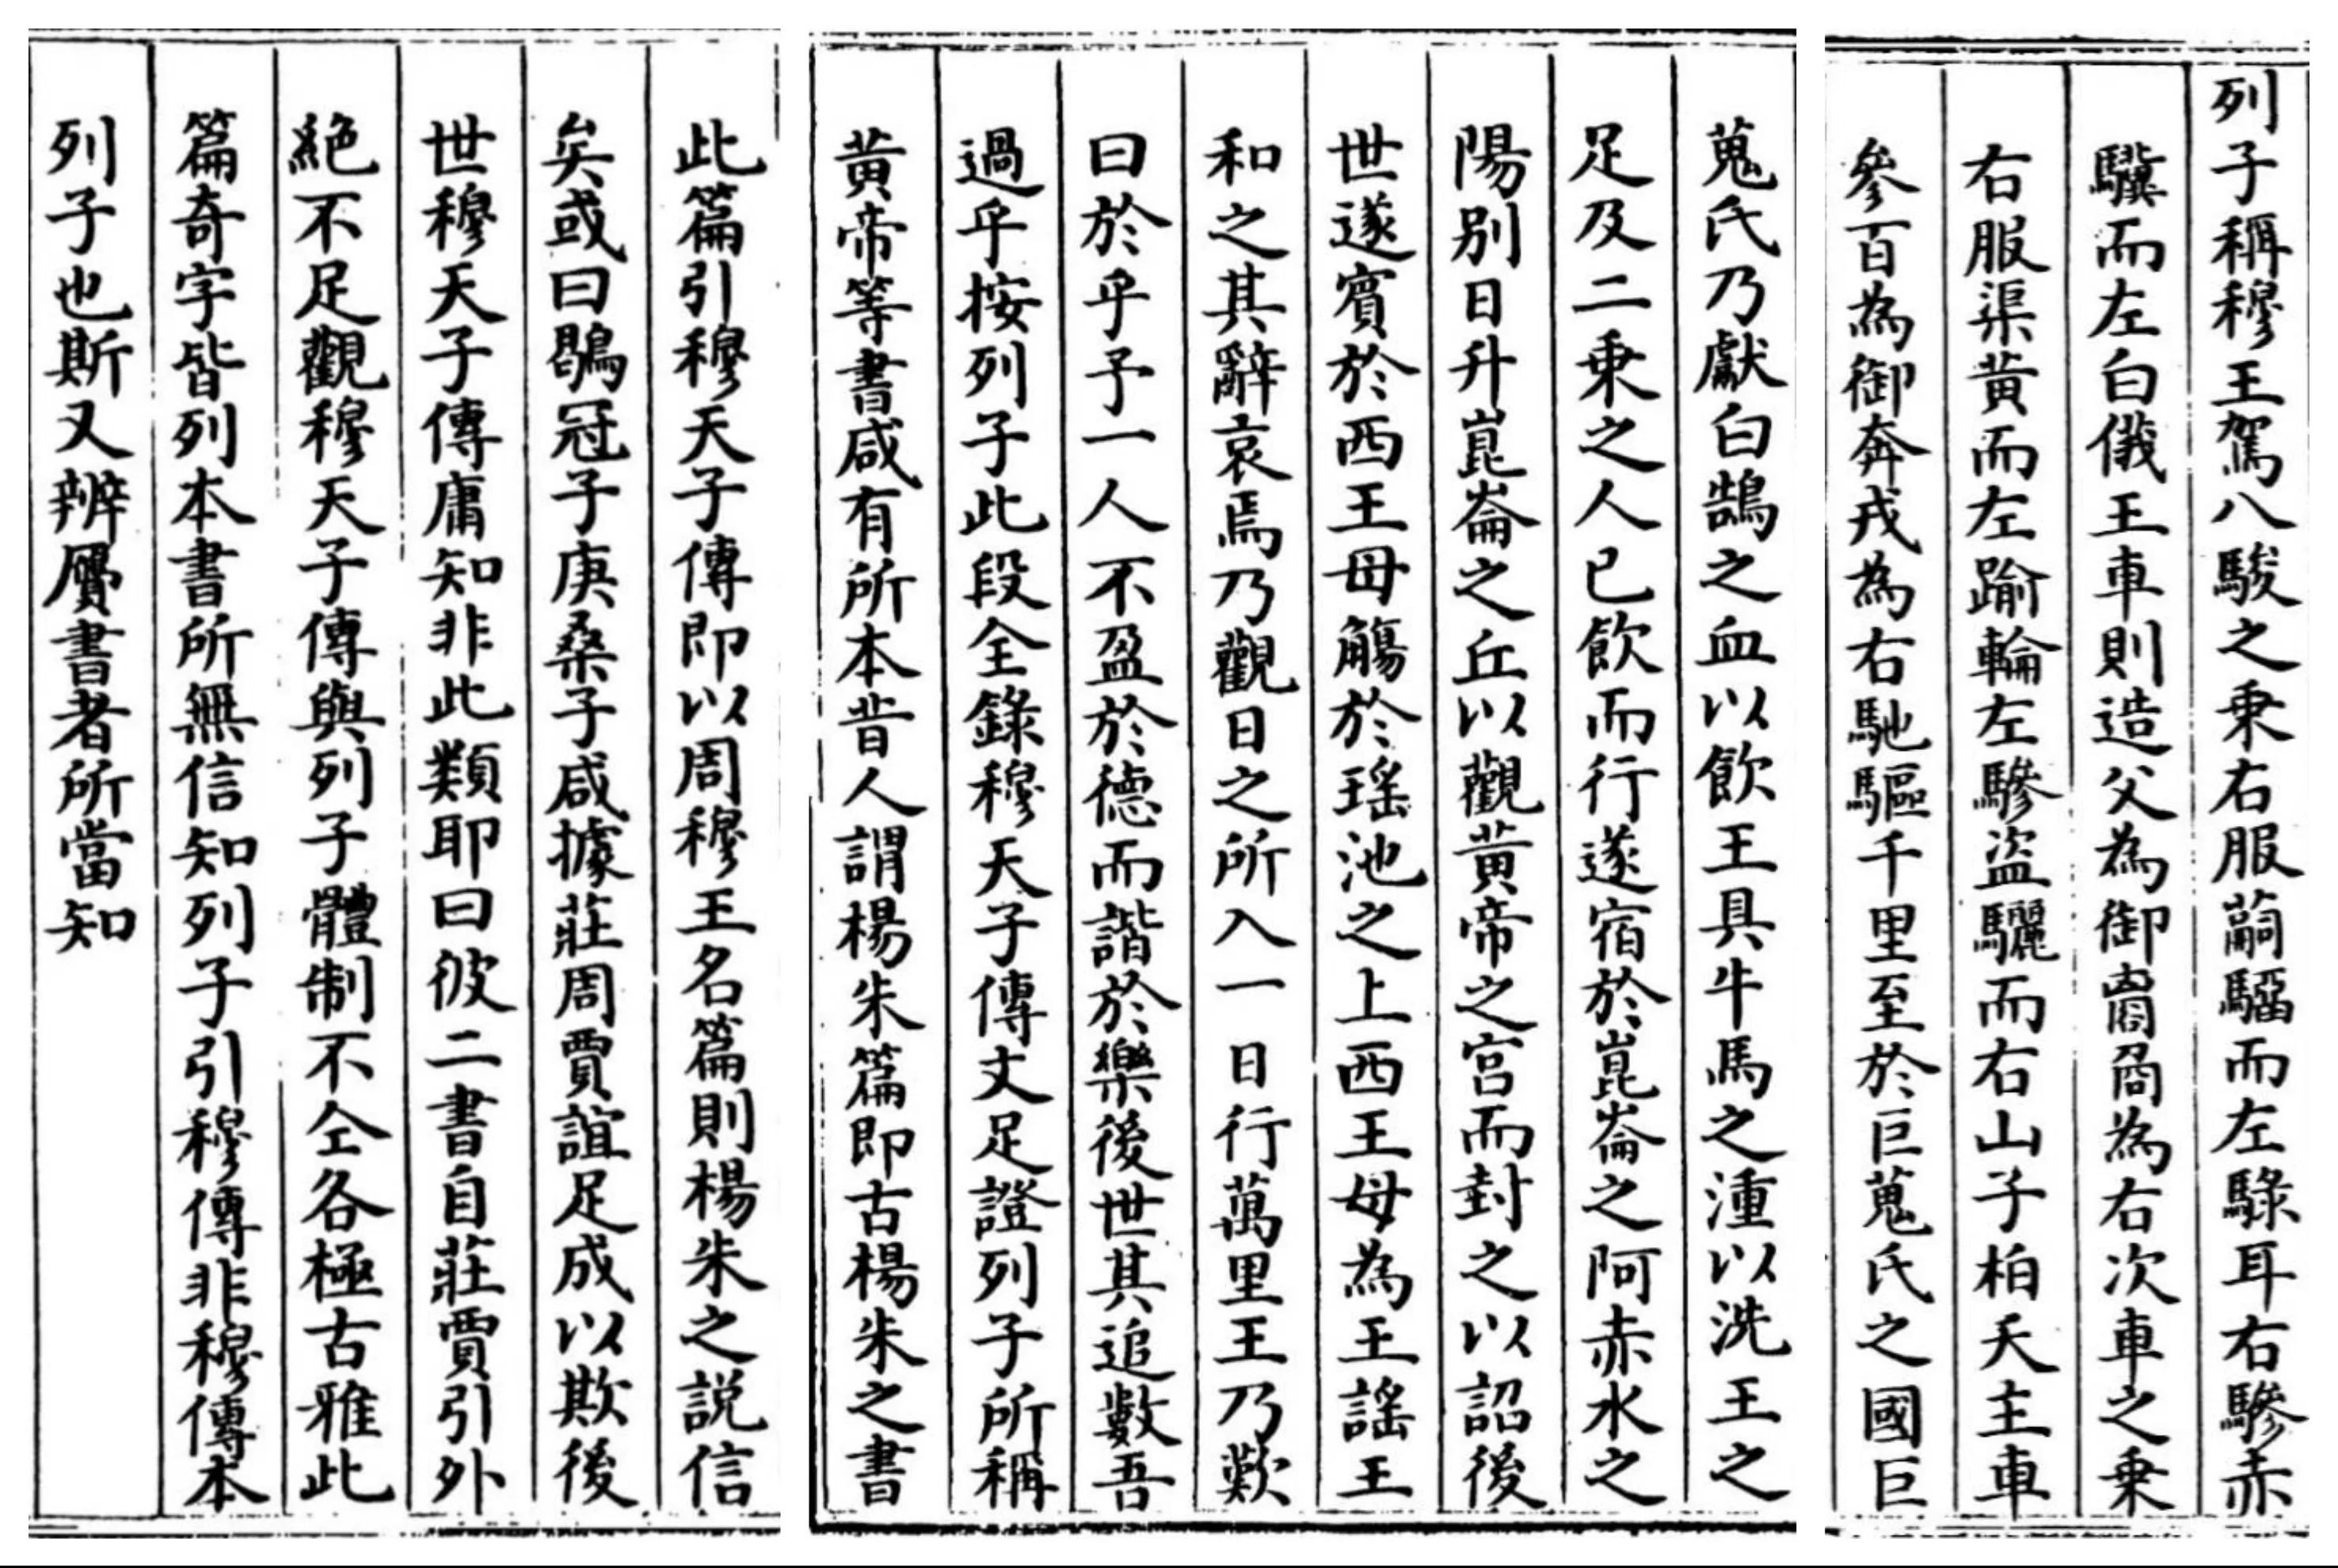 列子稱穆王駕八駿之乗右服䮤騮而左騄耳右驂赤
驥而左白㒖王車則造父為御𧯆𠱓為右次車之乗
右服渠黃而左踰輪左驂盜驪而右山子柏夭主車
參百為御奔戎為右馳驅千里至於巨蒐氏之國巨
蒐氏乃獻白鵠之血以飲王具牛馬之湩以洗王之
足及二乗之人已飲而行遂宿於崑崙之阿赤水之
陽別日升崑崙之丘以觀黃帝之宮而封之以詔後
世遂賓於西王母觴於瑤池之上西王母為王謠王
和之其辭哀焉乃觀日之所入一日行萬里王乃歎
曰於乎予一人不盈於德而諧於樂後世其追數吾
過乎按列子此段全錄穆天子傳文足證列子所稱
黃帝等書咸有所本昔人謂楊朱篇即古楊朱之書
此篇引穆天子傳即以周穆王名篇則楊朱之説信
矣或曰鶡冠子庚桑子咸據莊周賈誼足成以欺後
世穆天子傳庸知非此類耶曰彼二書自莊賈引外
絕不足觀穆天子傳與列子體制不仝各極古雅此
篇奇字皆列本書所無信知列子引穆傳非穆傳本
列子也斯又辨贗書者所當知